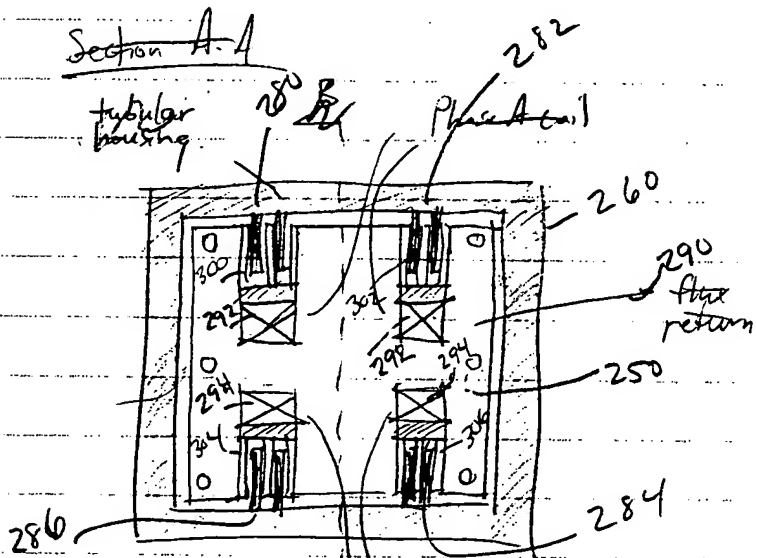 Section A-A
280
282
tubular
housing
Phase A coil
260
290
flux
return
300
302
292
292
294
294
250
304
306
286
284